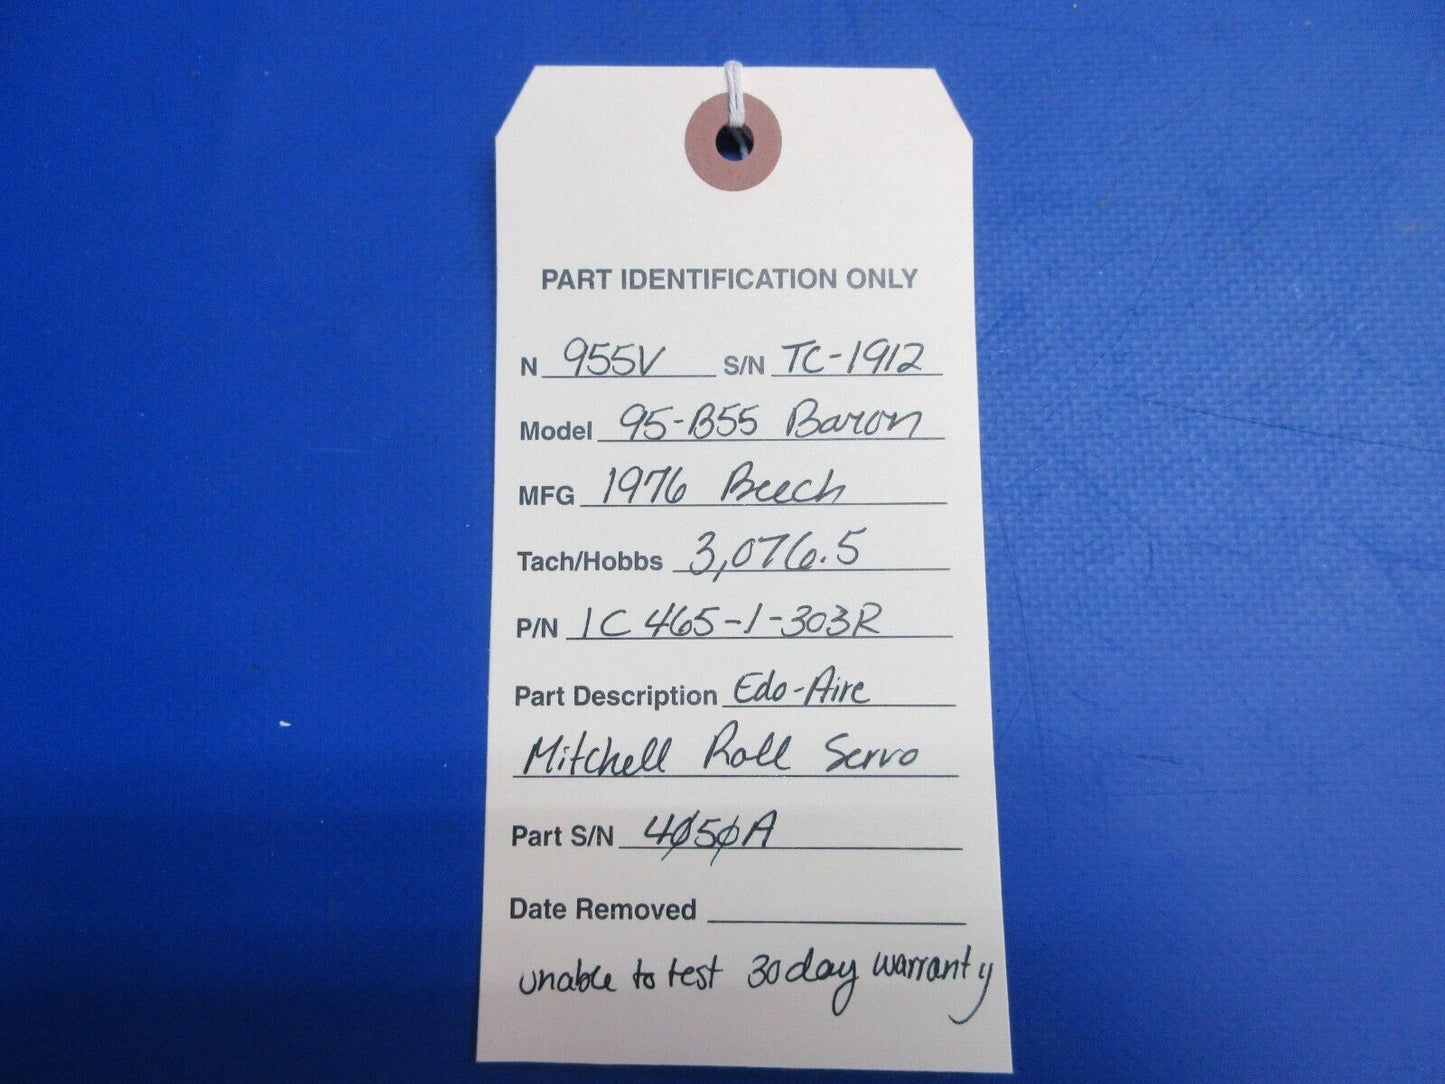 PART IDENTIFICATION ONLY
N 955V S/N TC-1912
Model 95-B55 Baron
MFG 1976 Beech
Tach/Hobbs 3,076.5
P/N 1C 465-1-303R
Part Description Edo-Aire
Mitchell Roll Servo
Part S/N 4050A
Date Removed
unable to test 30 day warranty